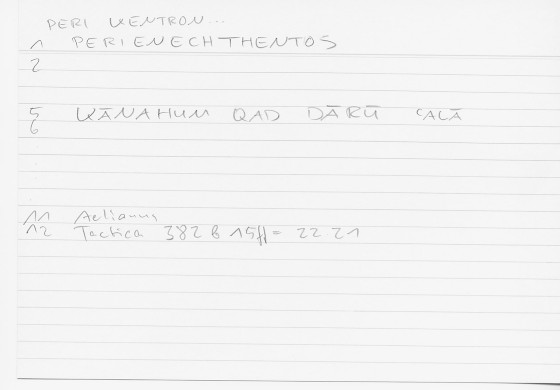 PERI KENTRON...
1 PERIENECHTHENTOS
2
5 KĀNAHUM QAD DĀRŪ ʿALĀ
6
11 Aelianus
12 Tactica 382 B 15ff = 22.21